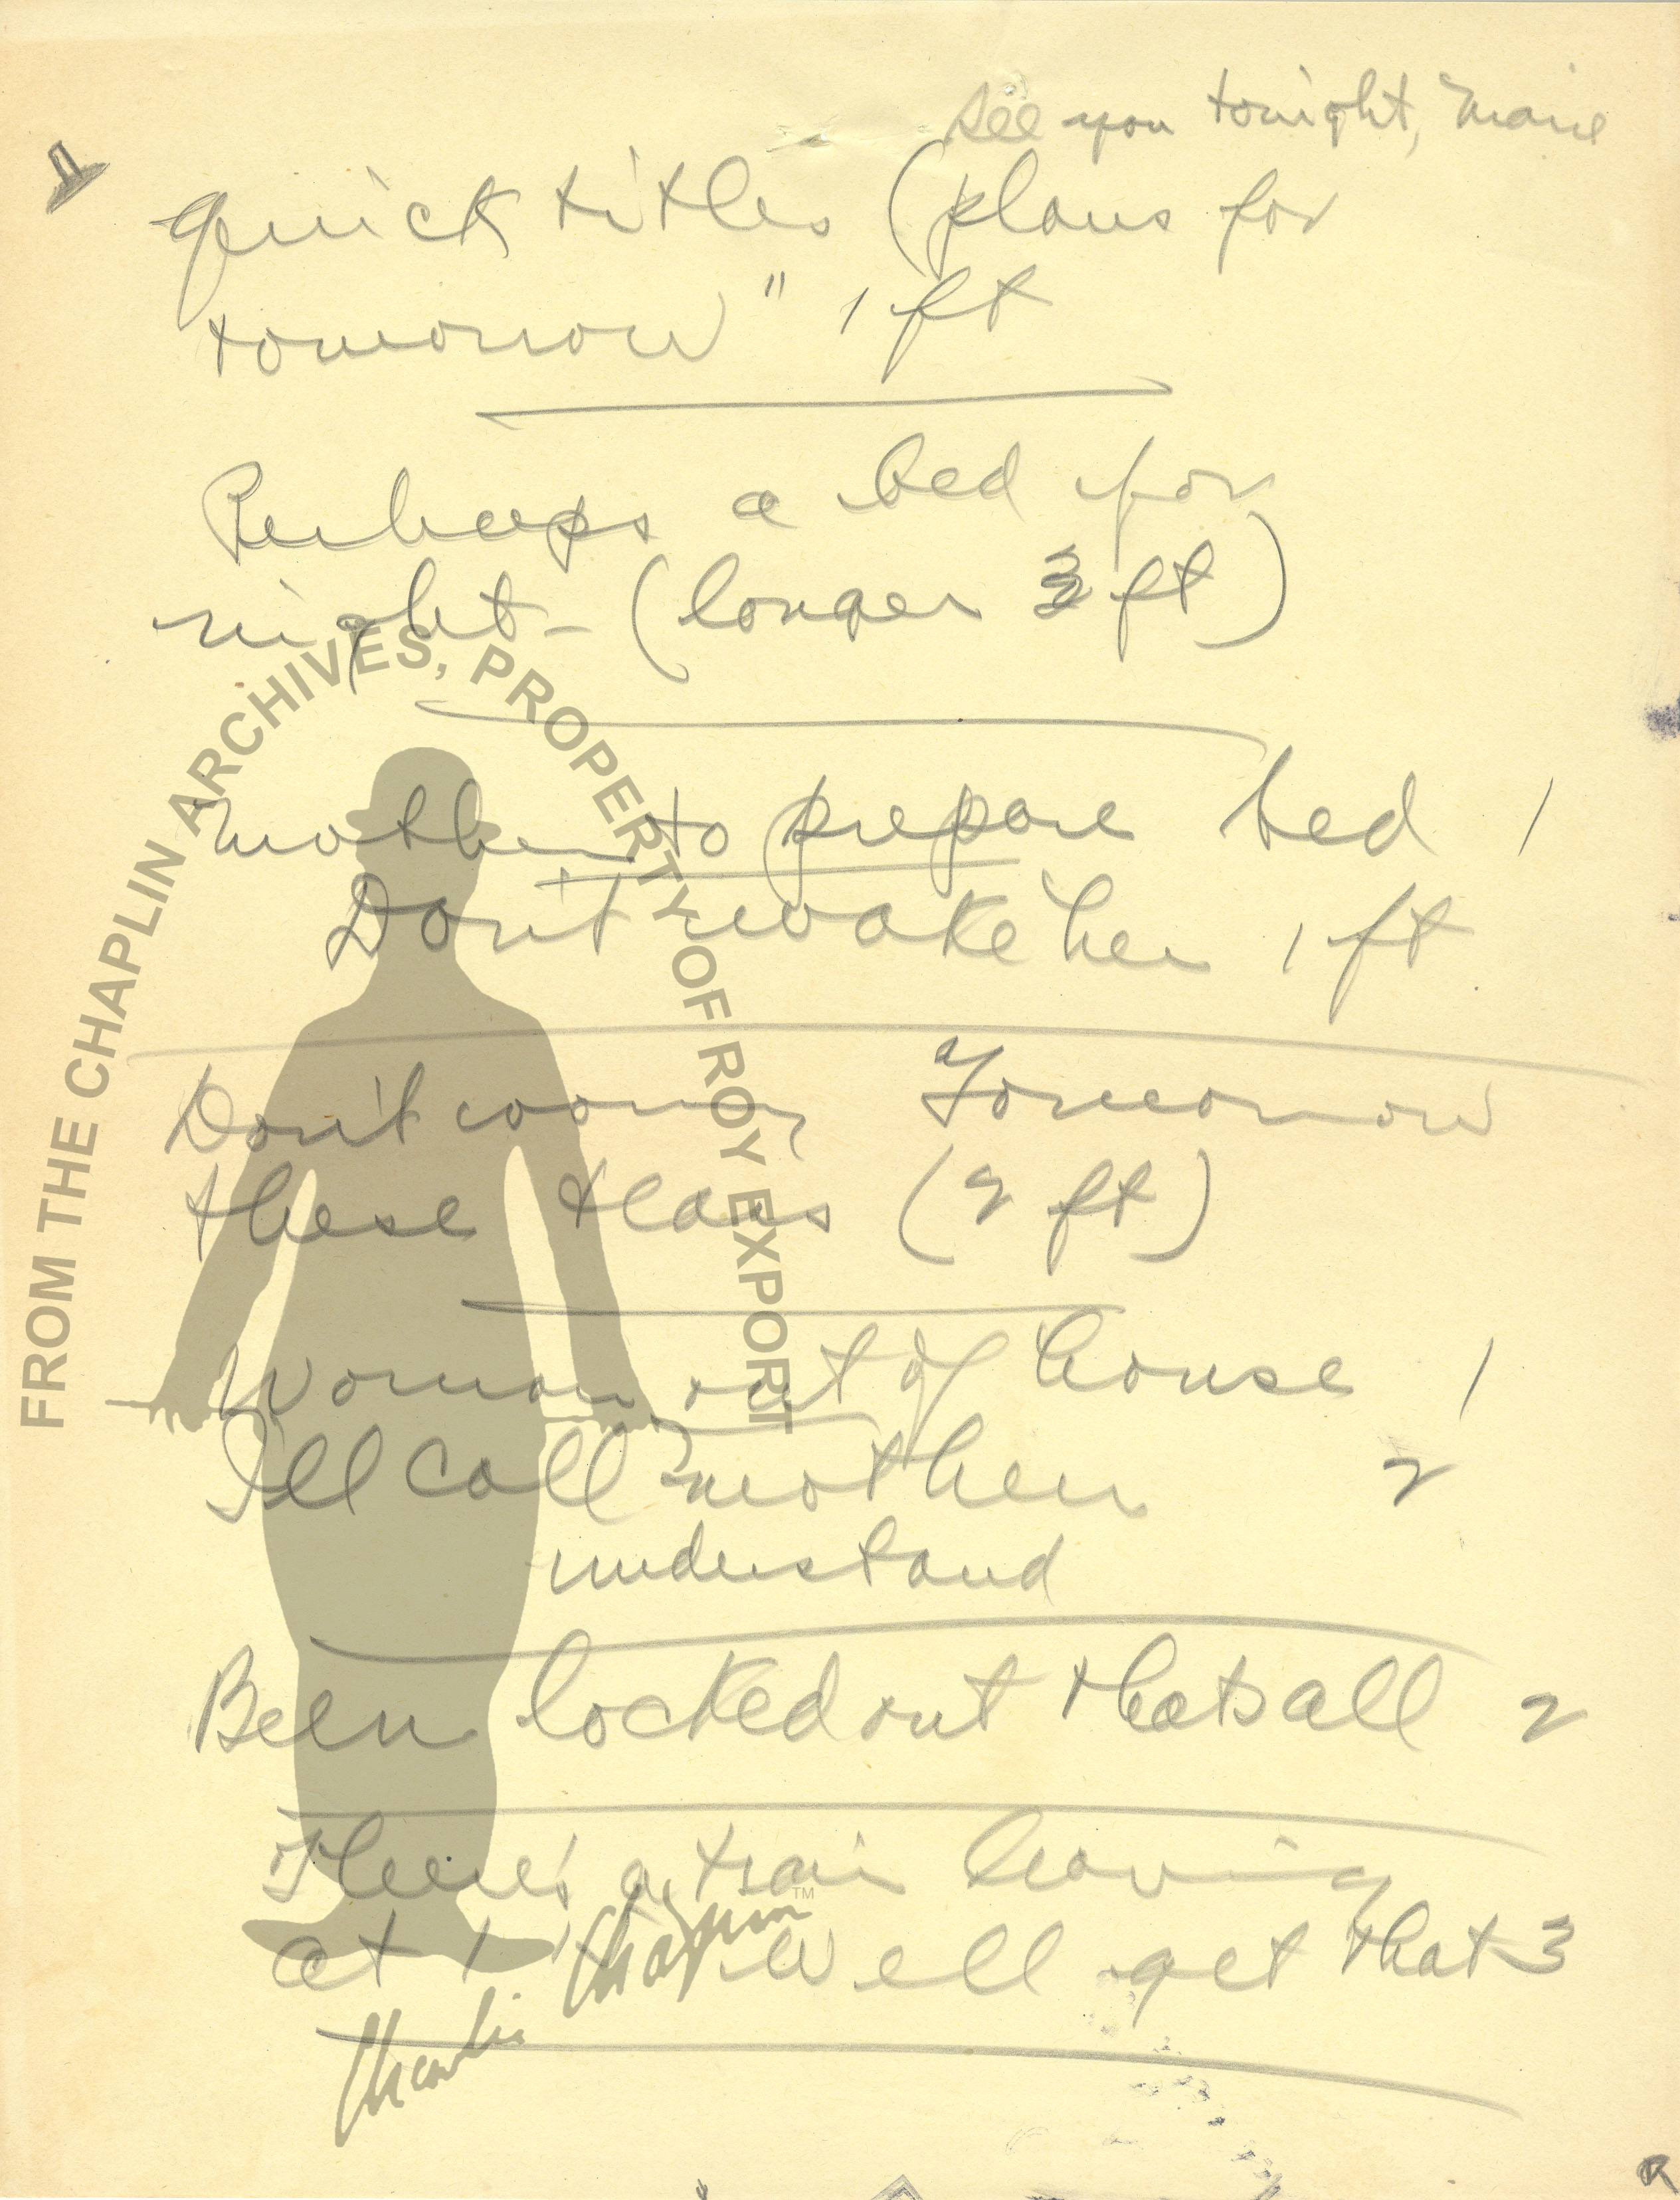 see you tonight, Marie
quick titles (plans for
tomorrow" 1 ft
Perhaps a bed for
night - (longer 3 ft)
mother to prepare bed 1
Don't wake her 1 ft
Don't worry Tomorrow
these tears (2 ft)
Woman out of house 1
I'll call mother 2
understand
Been locked out thats all 2
There's a train leaving
at 1 we'll get that 3
FROM THE CHAPLIN ARCHIVES, PROPERTY OF ROY EXPORT
Charlie Chaplin™